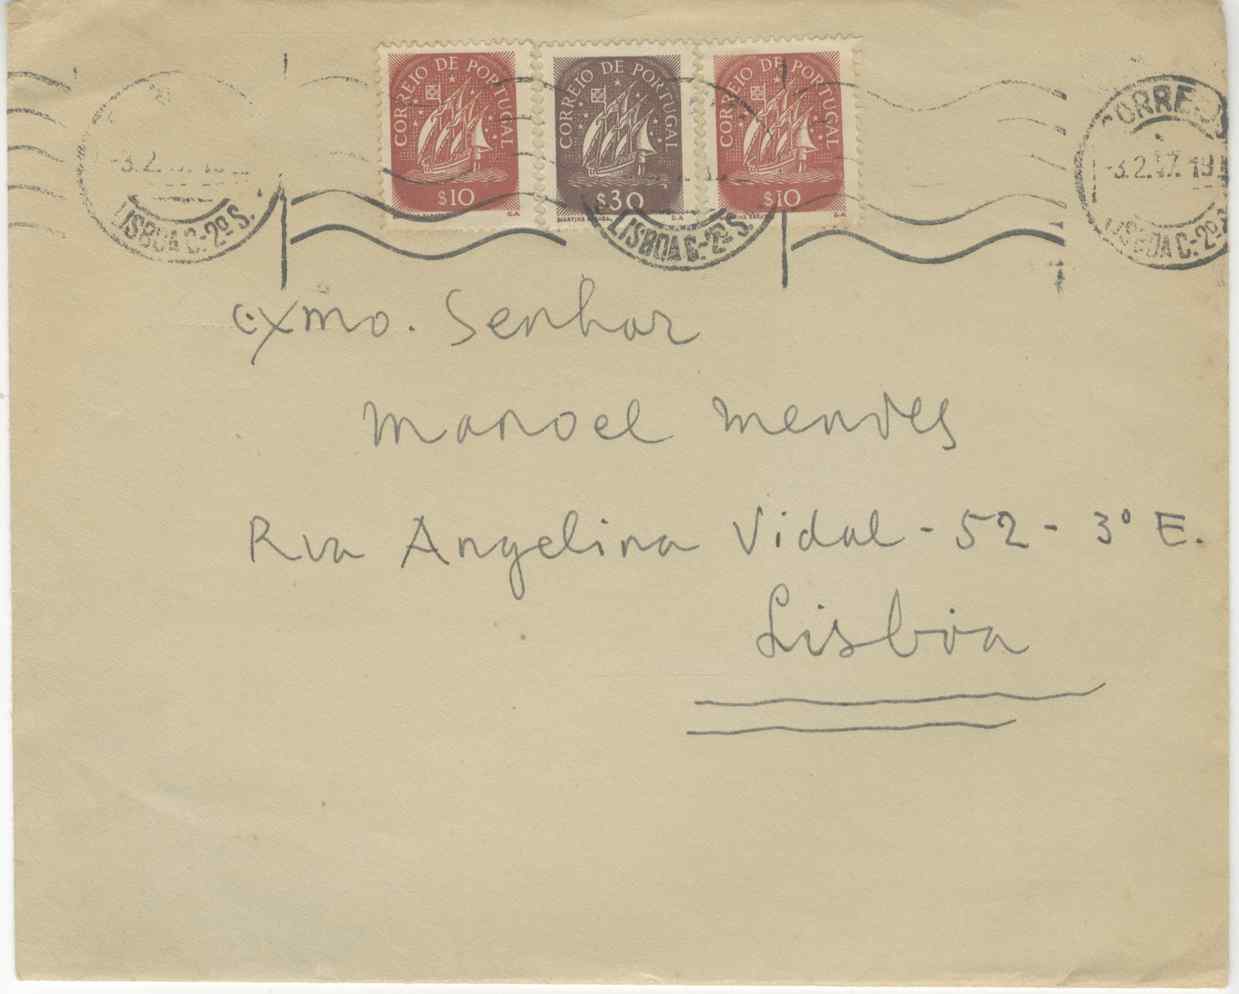 CORREIO DE PORTUGAL
$10
CORREIO DE PORTUGAL
$30
CORREIO DE PORTUGAL
$10
LISBOA C.-2º S.
LISBOA C.-2º S.
CORREIOS
-3.2.47.19
LISBOA C.-2º S
Exmo. Senhor
Manoel Mendes
Rua Angelina Vidal - 52 - 3º E.
Lisboa